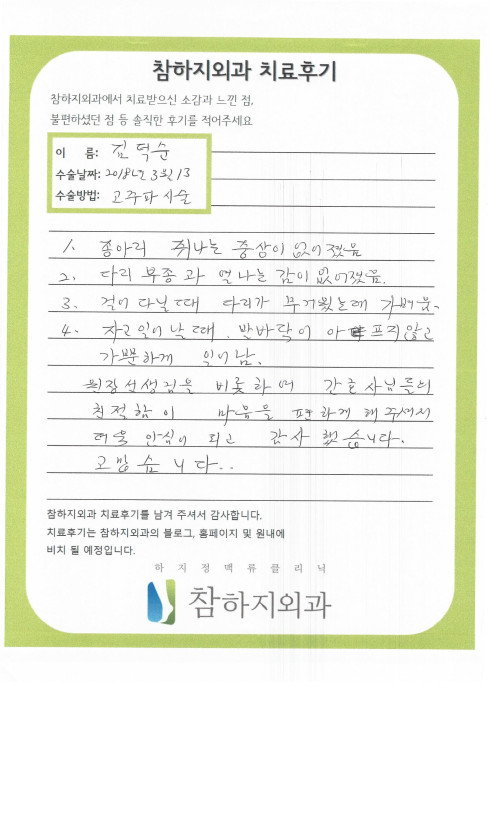 참하지외과 치료후기
참하지외과에서 치료받으신 소감과 느낀 점,
불편하셨던 점 등 솔직한 후기를 적어주세요
이 름: 김덕순
수술날짜: 2018년 3월 13
수술방법: 고주파 시술
1. 종아리 쥐나는 증상이 없어졌음
2. 다리 부종과 열나는 감이 없어졌음.
3. 걸어 다닐때 다리가 무거웠는데 가벼움.
4. 자고 일어날때. 발바닥이 아프지않고
가뿐하게 일어남.
원장선생님을 비롯하여 간호사님들의
친절함이 마음을 편하게 해주셔서
더욱 안심이 되고 감사했습니다.
고맙습니다..
참하지외과 치료후기를 남겨 주셔서 감사합니다.
치료후기는 참하지외과의 블로그, 홈페이지 및 원내에
비치 될 예정입니다.
하지정맥류클리닉
참하지외과